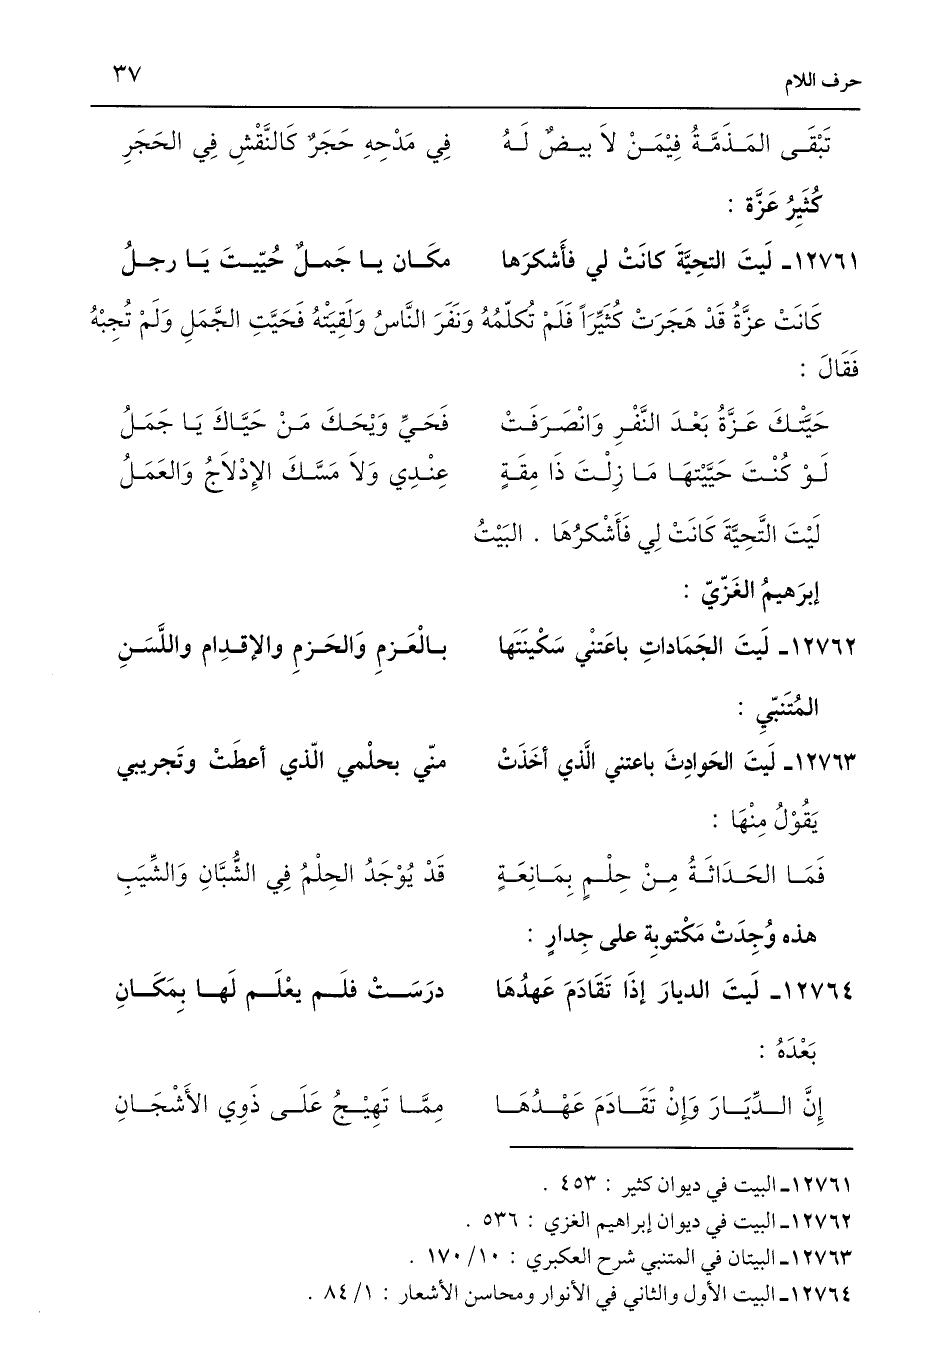 حرف اللام ٣٧
تَبْقَى المَذَمَّةُ فِيْمَنْ لاَ بيضٌ لَهُ فِي مَدْحِهِ حَجَرٌ كَالنَّقْشِ فِي الحَجَرِ
كُثَيِّرُ عَزَّة :
١٢٧٦١ـ لَيتَ التحيَّةَ كانَتْ لي فأَشكرَها مكَان يا جَملٌ حُيّيتَ يَا رجلُ
كَانَتْ عزَّةُ قَدْ هَجَرَتْ كُثَيِّرَاً فَلَمْ تُكلّمْهُ وَنَفَرَ النَّاسُ وَلَقِيَتْهُ فَحَيَّتِ الجَّمَلِ وَلَمْ تُجِبْهُ
فَقَالَ :
حَيَّتْكَ عَزَّةُ بَعْدَ النَّفْرِ وَانْصَرَفَتْ فَحَيِّ وَيْحَكَ مَنْ حَيَّاكَ يَا جَمَلُ
لَوْ كُنْتَ حَيَّيْتَهَا مَا زِلْتَ ذَا مِقَةٍ عِنْدِي وَلاَ مَسَّكَ الإِدْلاَجُ وَالعَمَلُ
لَيْتَ التَّحِيَّةَ كَانَتْ لِي فَأَشْكرُهَا . البَيْتُ
إبرَهيمُ الغَزّيّ :
١٢٧٦٢ـ لَيتَ الجَمَاداتِ باعَتنْي سَكْينَتَها بالْعَزمِ وَالحَزمِ والإقدِامِ واللَّسَنِ
المُتَنبّي :
١٢٧٦٣ـ لَيتَ الحَوادِثَ باعتني الَّذي أخَذَتْ منّي بحلْمي الّذي أعطَتْ وتَجريبي
يَقُوْلُ مِنْهَا :
فَمَا الحَدَاثَةُ مِنْ حِلْمٍ بِمَانِعَةٍ قَدْ يُوْجَدُ الحِلْمُ فِي الشُّبَّانِ وَالشِّيَبِ
هذه وُجِدَتْ مَكْتوبة على جِدارٍ :
١٢٧٦٤ـ لَيتَ الديارَ إذَا تَقَادَمَ عَهدُهَا درَسَتْ فلَم يعْلَم لَها بِمَكَانِ
بَعْدَهُ :
إِنَّ الدِّيَارَ وَإِنْ تَقَادَمَ عَهْدُهَا مِمَّا تَهِيْجُ عَلَى ذَوِي الأَشْجَانِ
١٢٧٦١ـ البيت في ديوان كثير : ٤٥٣ .
١٢٧٦٢ـ البيت في ديوان إبراهيم الغزي : ٥٣٦ .
١٢٧٦٣ـ البيتان في المتنبي شرح العكبري : ١٠/ ١٧٠ .
١٢٧٦٤ـ البيت الأول والثاني في الأنوار ومحاسن الأشعار : ١/ ٨٤ .